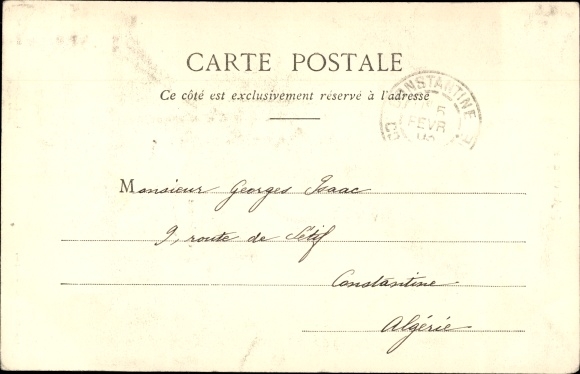 CARTE POSTALE
Ce côté est exclusivement réservé à l'adresse
CONSTANTINE
FEVR
Monsieur Georges Isaac
9, route de Sétif
Constantine
Algérie